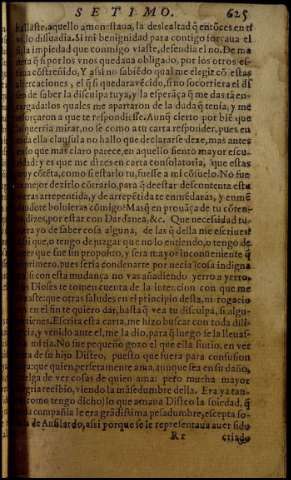 SETIMO. 625
hallaste, aquello amonestaua, la deslealtad q̃ entõces en ti
lo dissuadia. Assi mi benignidad para contigo forçaua el
la impiedad que conmigo vsaste, defendia el no. De ma
q̃ si por los vnos quedaua obligado, por los otros es
cõstreñido, Y assi no sabiẽdo qual me elegir cõ estas
altercaciones, el q̃ si quedara vẽcido, si no socorriera el di
de saber la disculpa tuya, y la esperãça q̃ me dastas en
cargadas los quales me apartaron de la duda q̃ tenia, y me
forçaron a que te respondiesse. Aunq̃ cierto por biẽ que
querria mirar, no se como a tu carta responder, pues en
ella clausula no hallo que declararse dexe, mas antes
lo que mas claro parece, en aquello siento mayor escu
ridad: y es que me dizes en carta consolatoria, que estas
cõtẽta, como si estarlo tu, fuesse a mi cõsuelo. No fue
mejor dezirlo cõtrario, para q̃ de estar descontenta estu
uieras arrepentida, y de arrepẽtida te enmẽdaras, y enmẽ
dandote boluieras cõmigo? Mas q̃ en prouãça de tu cõten
dizes, por estar con Dardanea, &c. Que necesidad tu
yo de saber cosa alguna, de las q̃ della me escriues?
que, o tengo de juzgar que no lo entiendo, o tengo de
que fue sin proposito, y sera mayor inconueniente q̃
primero, pues seria condenarte por necia (cosa indigna
si con esta mudança no vas añadiendo yerro a yerro,
Dioses te tomen cuenta de la intencion con que me
que otras saludes en el principio desta, ni rogacio
en el fin te quiero dar, hasta q̃ vea tu disculpa, si algu
tienes. Escrita esta carta, me hizo buscar con toda dili
gẽcia, y venido ante el, me la dio, para q̃ luego se la lleuas
mi señora. No fue pequeño gozo el que ella sintio, en ver
de su hijo Disteo, puesto que fuera para confusion
que quien perfetamente ama, aunque sea en su daño,
huelga de ver cosas de quien ama: pero mucha mayor
alegria recibio, viendo la mãsedumbre della. Era ya tan
(como tengo dicho) lo que amaua Disteo la soledad, q̃
compañia le era grãdissima pesadumbre, excepta so
la de Anfilardo, assi porque se le representaua auer sido
Rr criado